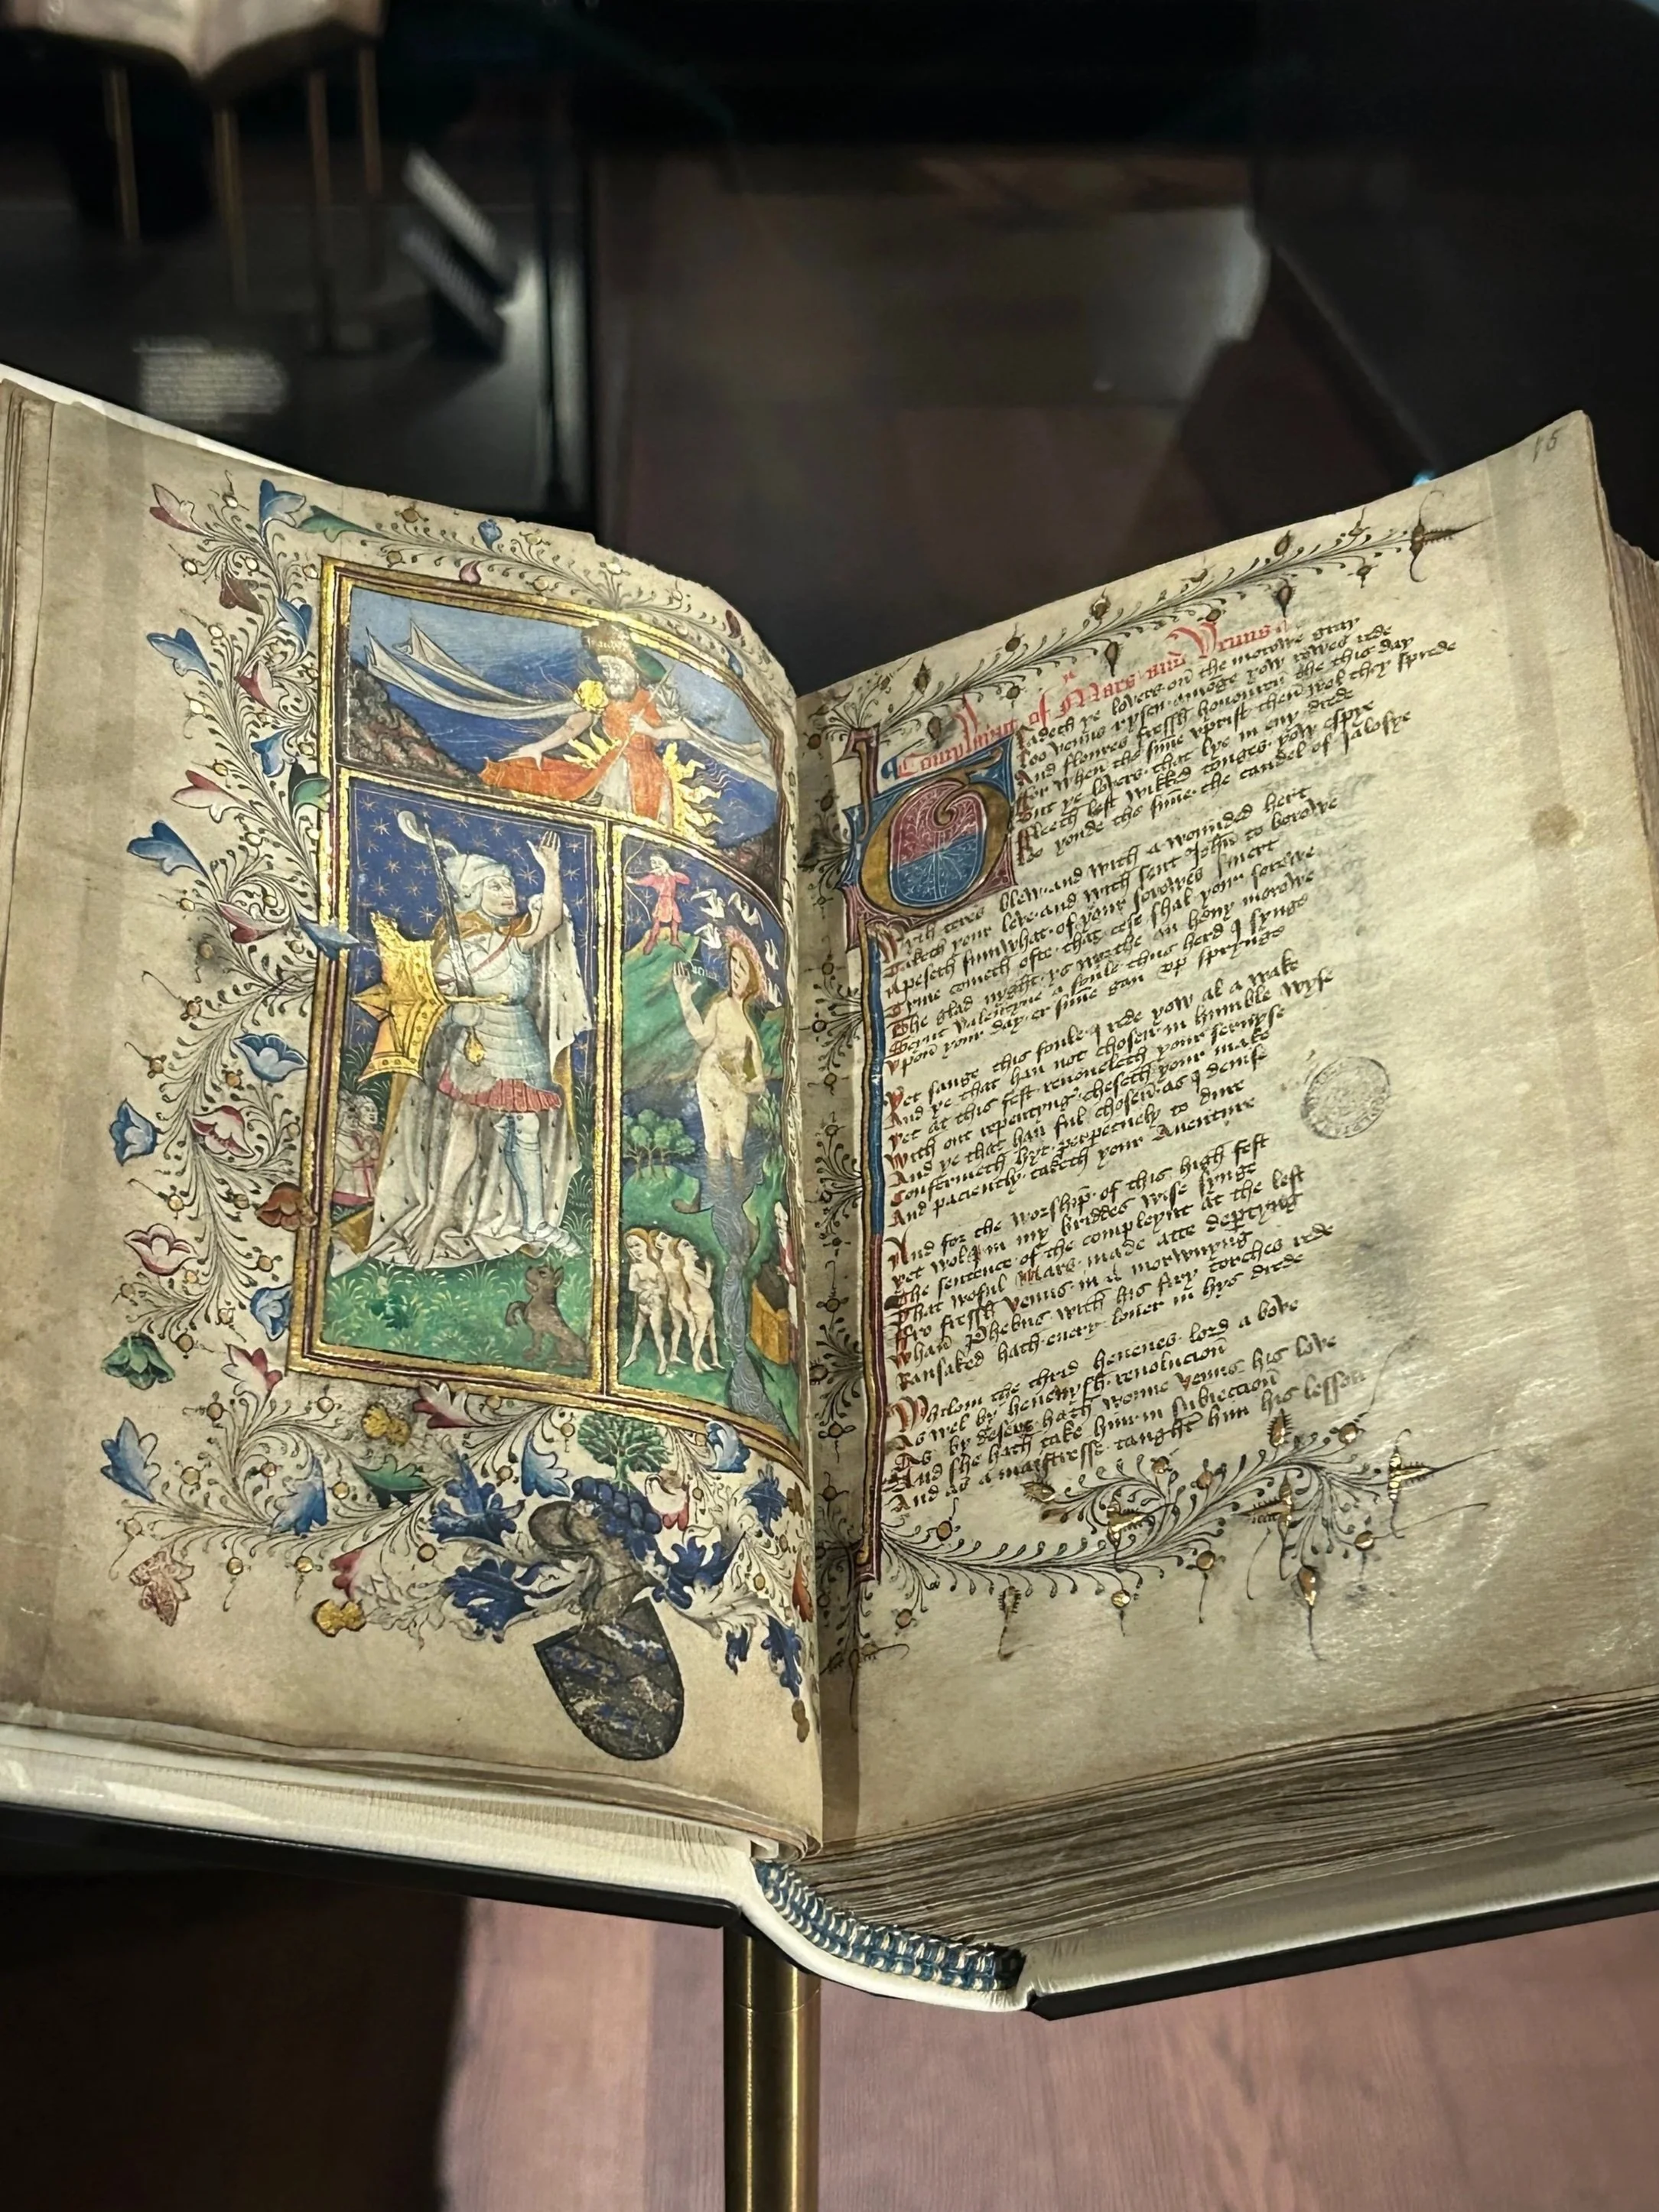 15
Venus
Compleynt of Mars and Venus
Gladeth ye lovers on the morowe gray
Loo venus rysen amonge yow rowes rede
And floures fressh honouren the this day
For when the sunne vprist then wol they sprede
But ye lovers that lye in eny drede
Fleeth lest wikked tonges yow espye
Lo yonde the sunne the candel of jalosye
With teres blew and with a wounded hert
Taketh your leve and with seint John to borowe
Apeseth sumwhat of your sorowes smert
Tyme cometh ofte that cese shal your sorowe
The glad nyght ys worthe an hevy morowe
Seynt valentyne a foule thus herd I synge
Vpon your day er sunne gan vp sprynge
Yet sange this foule I rede yow al a wake
And ye that han not chosen in humble wyse
With out repentyng cheseth your make
And ye that han ful chosen as I devise
Yet at this fest renoueleth your servyse
Confermeth hyt perpetuely to dure
And paciently taketh your Auenture
And for the worship of this high fest
Yet wol I in my briddes wise synge
The sentence of the compleynt at the lest
That woful Mars made atte departyng
Fro fressh venus in a morwnyng
Whan Phebus with his firy torches rede
Ransaked hath every lover in hys drede
Whilom the thrid hevenes lord a bove
As wel by hevenysh revolucion
As by desert hath wonne venus his love
And she hath take him in subieccion
And as a maistresse taught him his lesson